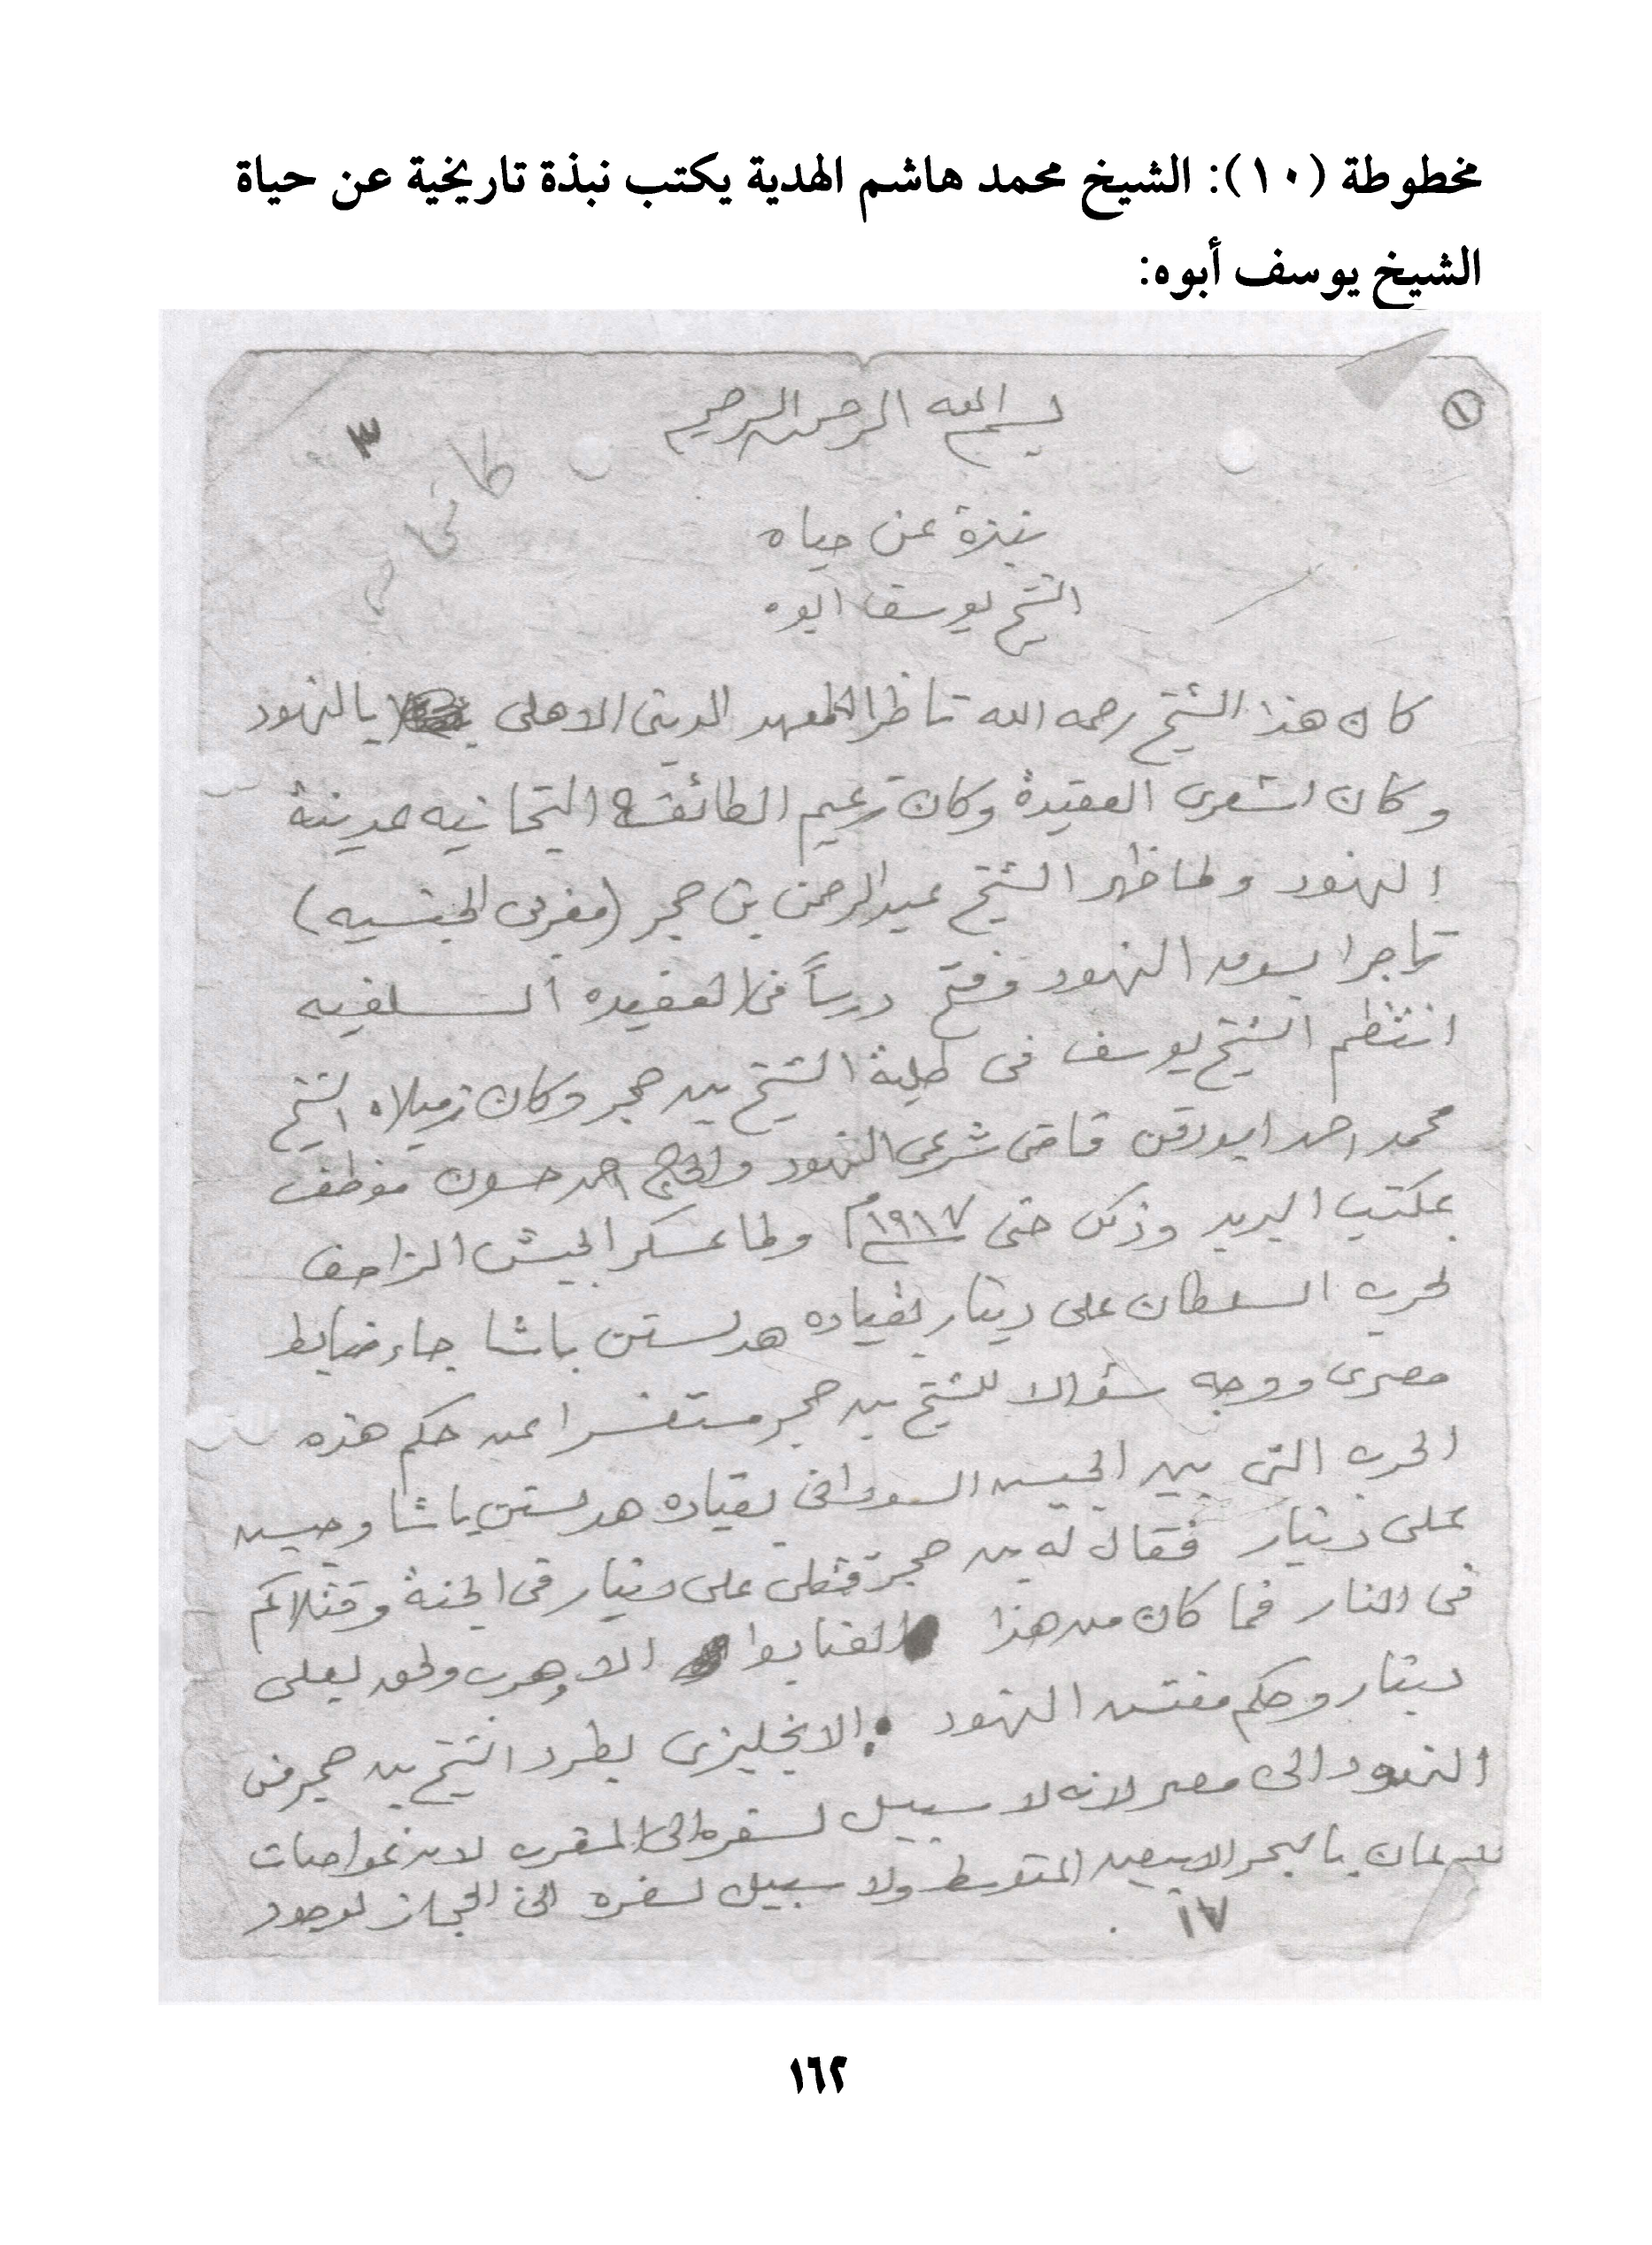 مخطوطة (١٠): الشيخ محمد هاشم الهدية يكتب نبذة تاريخية عن حياة
الشيخ يوسف أبوه:
١
بسم الله الرحمن الرحيم
٣
نبذة عن حياه
الشيخ يوسف ابوه
كان هذا الشيخ رحمه الله ناظرا للمعهد الدينى الاهلى بالنهود
وكان اشعرى العقيدة وكان زعيم الطائفه التجانيه بمدينة
النهود ولما ظهر الشيخ عبدالرحمن بن حجر (مغربى الجنسيه)
تاجرا بسوق النهود وفتح درساً فى العقيده السلفيه
انتظم الشيخ يوسف فى طلبة الشيخ بن حجر وكان زميلاه الشيخ
محمد احمد ابودقن قاضى شرعى النهود والحاج احمد حسون موظف
بمكتب البريد وذلك حتى ١٩١٧م ولما عسكر الجيش الزاحف
لحرب السلطان على دينار بقياده هدلستن باشا جاء ضابط
مصرى ووجه سؤالا للشيخ بن حجر مستفسرا عن حكم هذه
الحرب التى بين الجيش السودانى بقياده هدلستن باشا وجيش
على دينار فقال له بن حجر قتلى على دينار فى الجنة وقتلاكم
فى النار فما كان من هذا الضابط الا وهرب ولحق بعلى
دينار وحكم مفتش النهود الانجليزى بطرد الشيخ بن حجر من
النهود الى مصر لانه لا سبيل لسفره الى المغرب لان غواصات
للالمان بالبحر الابيض المتوسط ولا سبيل لسفره الى الحجاز لوجود
١٧
١٦٢